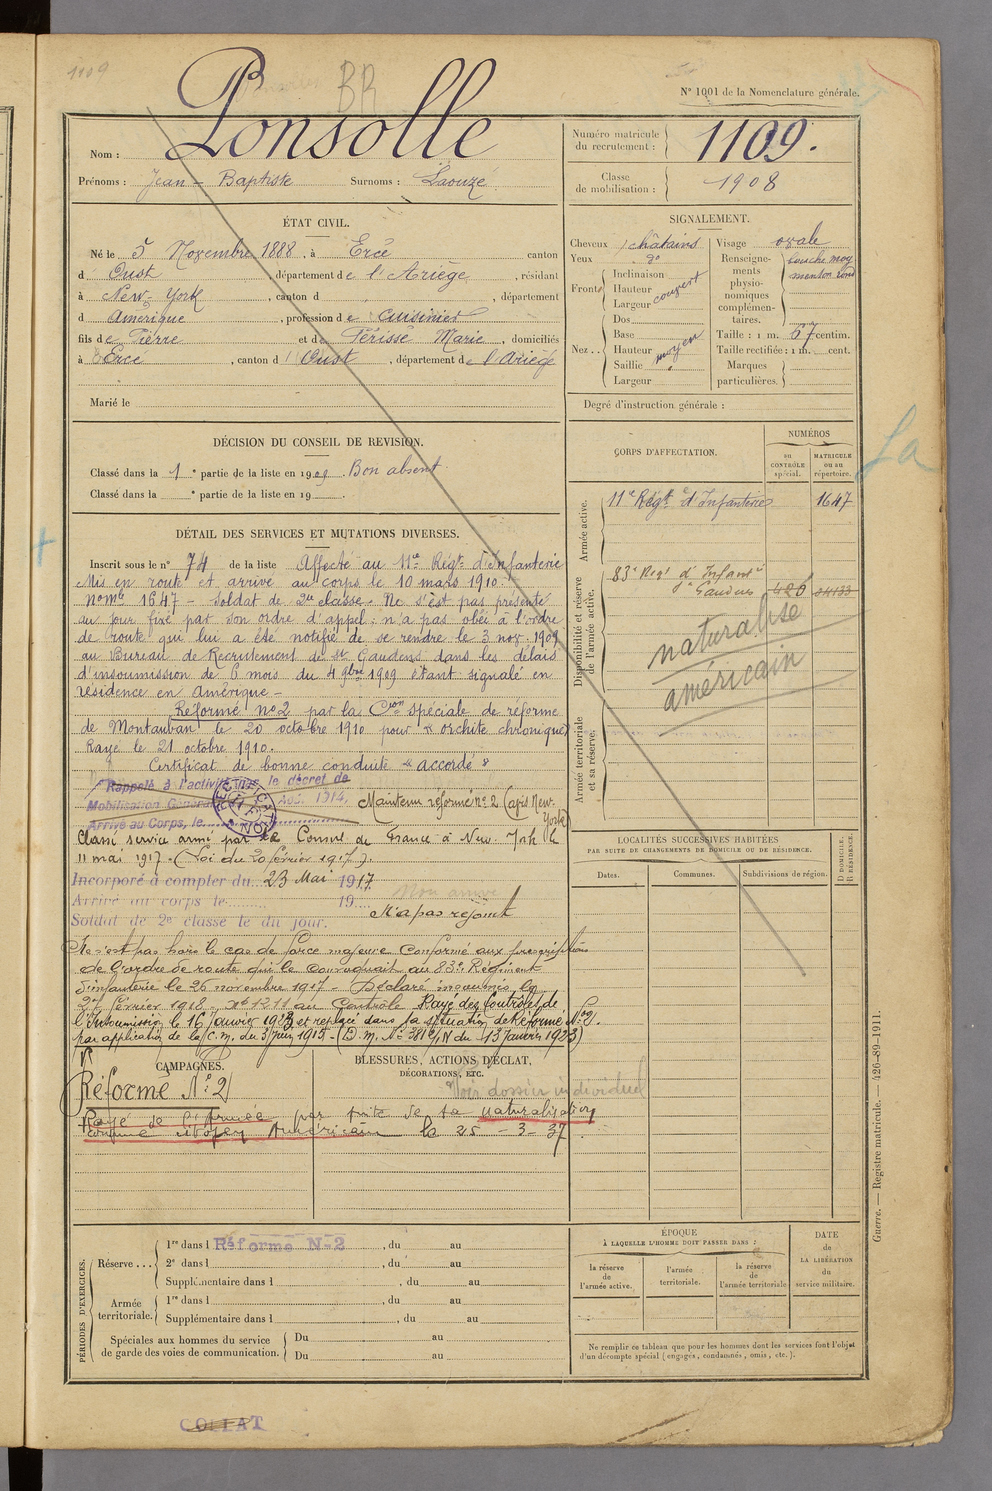 1109
BR
N° 1001 de la Nomenclature générale.
Nom : Ponsolle
Prénoms : Jean-Baptiste Surnoms : Laouzé
Numéro matricule du recrutement : 1109.
Classe de mobilisation : 1908
ÉTAT CIVIL.
Né le 5 Novembre 1888, à Ercé canton
d Oust, département de l'Ariège, résidant
à New-York, canton d , département
d Amérique, profession de cuisinier
fils de Pierre et de Férisse Marie, domiciliés
à Ercé, canton d Oust, département de l'Ariège
Marié le
SIGNALEMENT.
Cheveux châtains
Yeux do
Front Inclinaison Hauteur Largeur couvert
Nez Dos Base Hauteur Saillie Largeur moyen
Visage ovale
Renseignements physionomiques complémentaires. bouche moy menton rond
Taille : 1 m. 67 centim.
Taille rectifiée : 1 m. cent.
Marques particulières.
Degré d'instruction générale :
DÉCISION DU CONSEIL DE REVISION.
Classé dans la 1e partie de la liste en 1909. Bon absent
Classé dans la e partie de la liste en 19
CORPS D'AFFECTATION.
NUMÉROS
au CONTRÔLE spécial.
MATRICULE ou au répertoire.
Armée active.
11e Régt d'Infanterie 1647
Disponibilité et réserve de l'armée active.
83e Régt d'Infanie
St Gaudens 426
naturalisé
américain
Armée territoriale et sa réserve.
La
DÉTAIL DES SERVICES ET MUTATIONS DIVERSES.
Inscrit sous le n° 74 de la liste Affecté au 11e Régt d'Infanterie
Mis en route et arrivé au corps le 10 mars 1910.
No mle 1647 - Soldat de 2e classe. Ne s'est pas présenté
au jour fixé par son ordre d'appel : n'a pas obéi à l'ordre
de route qui lui a été notifié de se rendre le 3 nov. 1909
au Bureau de Recrutement de St Gaudens dans les délais
d'insoumission de 6 mois du 4 9bre 1909 étant signalé en
résidence en Amérique -
Réformé no 2 par la Cion spéciale de réforme
de Montauban le 20 octobre 1910 pour "orchite chronique"
Rayé le 21 octobre 1910.
Certificat de bonne conduite "accordé"
Rappelé à l'activité par le décret de
Mobilisation Générale Aoû. 1914.
Arrivé au Corps, le
Maintenu réformé no 2 (apis New-York)
Classé service armé par le Consul de France à New-York le
11 mai 1917. (Loi du 20 février 1917).
Incorporé à compter du 23 Mai 1917.
Arrivé au corps le 19 Non arrivé
Soldat de 2e classe le du jour. N'a pas rejoint
Ne s'est pas hors le cas de force majeure conformé aux prescriptions
de l'ordre de route qui le convoquait au 83e Régiment
d'infanterie le 26 novembre 1917 - Déclaré insoumis le
2 février 1918 - au Contrôle Rayé des Contrôles de
l'Insoumission le 16 Janvier 1923 et replacé dans sa situation de Réformé No 2.
par application de la C.M. du 3 Juin 1915 - (D.M. No 3810 du 13 Janvier 1923)
LOCALITÉS SUCCESSIVES HABITÉES
PAR SUITE DE CHANGEMENTS DE DOMICILE OU DE RÉSIDENCE.
Dates.
Communes.
Subdivisions de région.
D DOMICILE. R RÉSIDENCE.
CAMPAGNES.
BLESSURES, ACTIONS D'ÉCLAT,
DÉCORATIONS, ETC.
Réformé No 2
Voir dossier individuel
Rayé de l'Armée par suite de sa naturalisation
comme citoyen Américain le 25 - 3 - 37.
PÉRIODES D'EXERCICES.
Réserve
1re dans l Réforme N-2, du au
2e dans l , du au
Supplémentaire dans l , du au
Armée territoriale.
1re dans l , du au
Supplémentaire dans l , du au
Spéciales aux hommes du service de garde des voies de communication.
Du au
Du au
ÉPOQUE
À LAQUELLE L'HOMME DOIT PASSER DANS :
la réserve de l'armée active.
l'armée territoriale.
la réserve de l'armée territoriale
DATE de LA LIBÉRATION du service militaire.
Ne remplir ce tableau que pour les hommes dont les services font l'objet
d'un décompte spécial (engagés, condamnés, omis, etc.).
Guerre. — Registre matricule. — 426-89-1911.
COLLAT